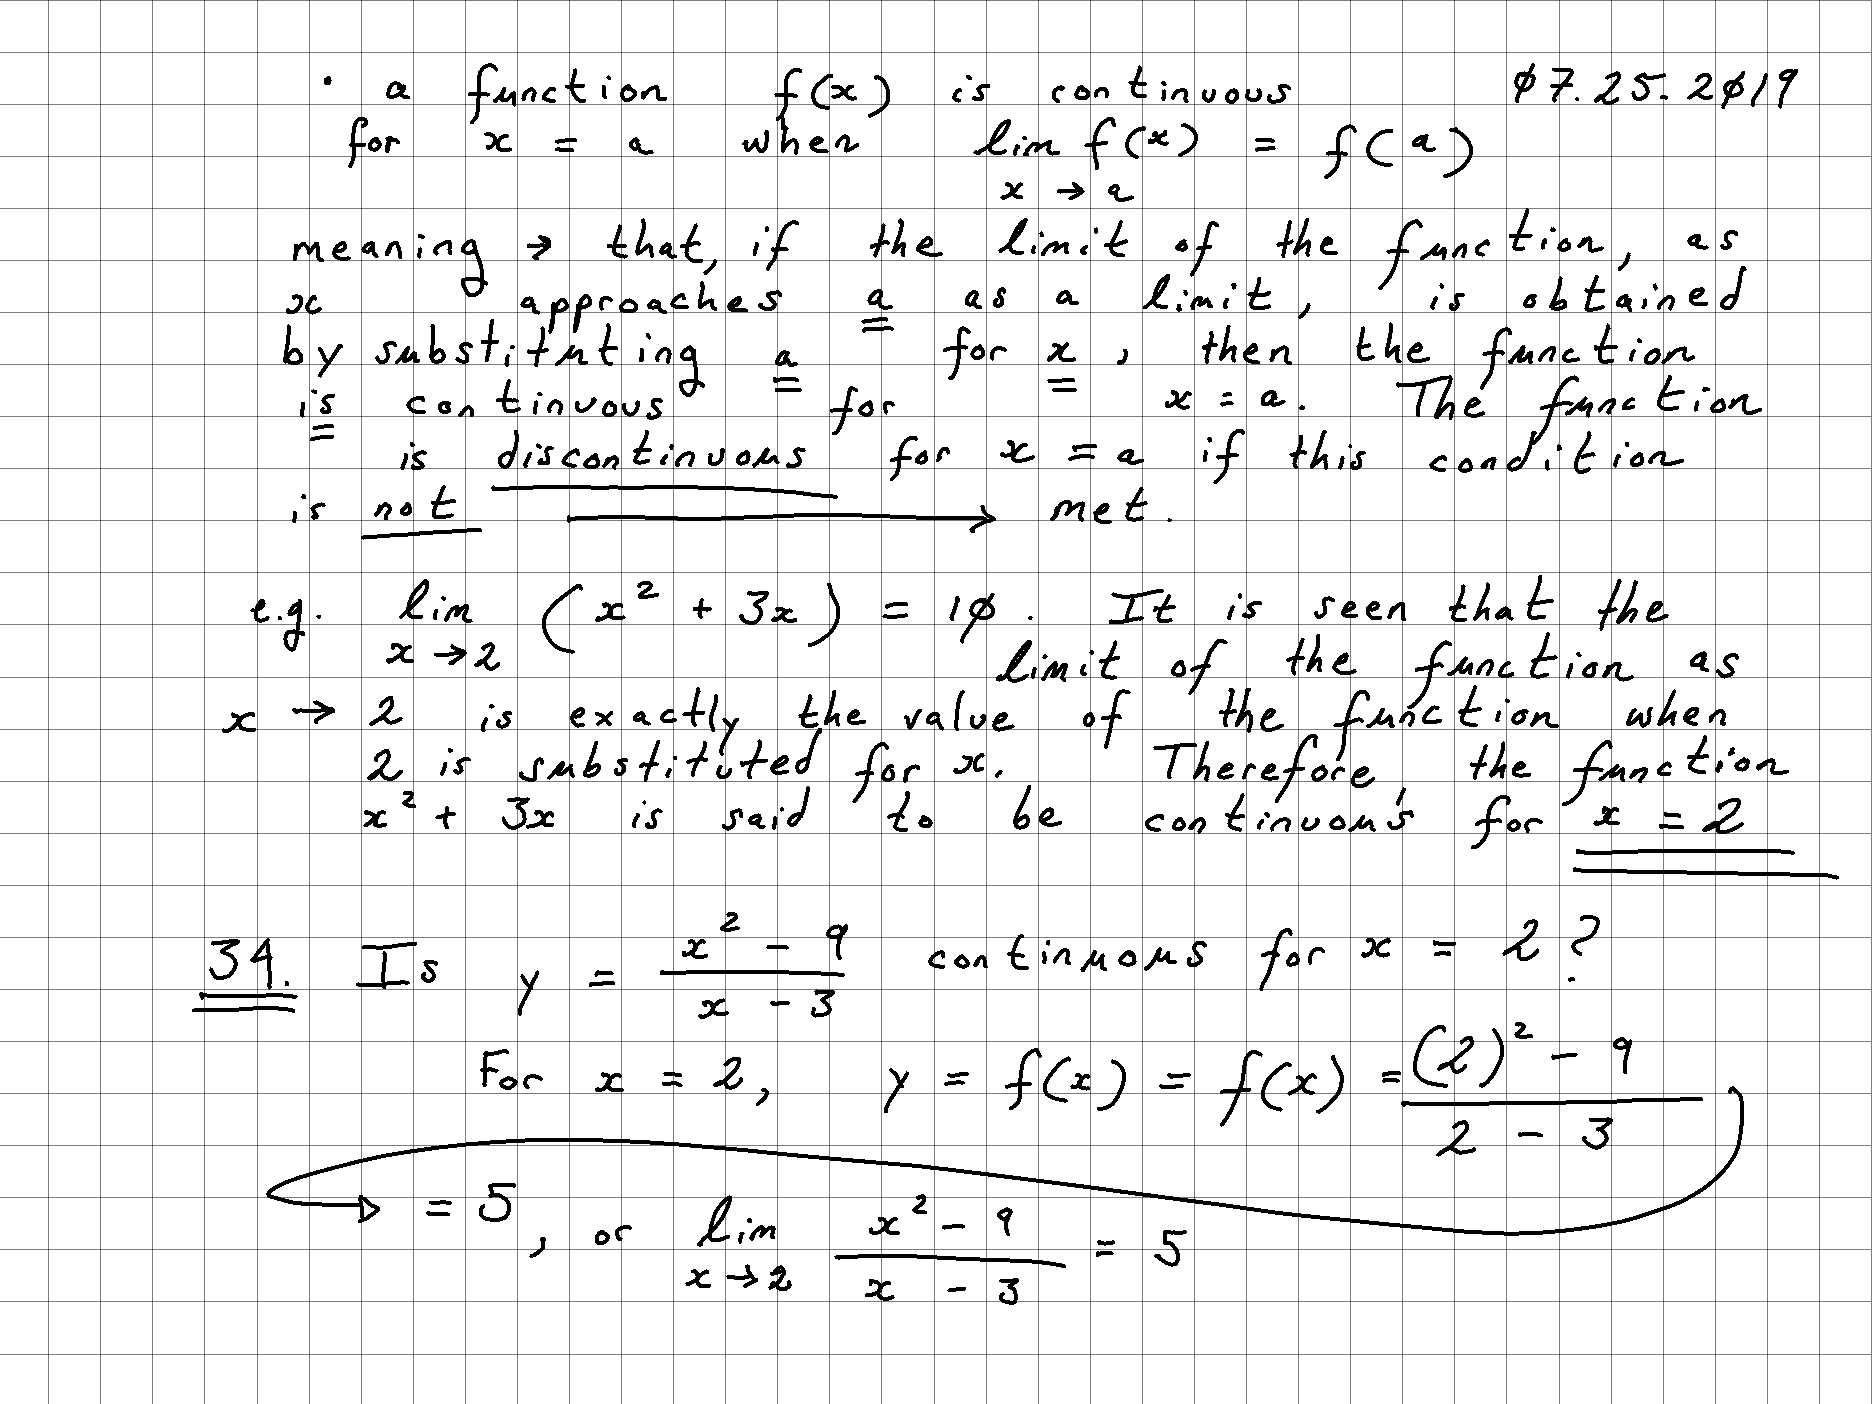 · a function f(x) is continuous 07.25.2019
for x = a when lim f(x) = f(a)
x → a
meaning → that, if the limit of the function, as
x approaches a as a limit, is obtained
by substituting a for x, then the function
is continuous for x = a. The function
is discontinuous for x = a if this condition
is not → met.
e.g. lim (x² + 3x) = 10. It is seen that the
x → 2 limit of the function as
x → 2 is exactly the value of the function when
2 is substituted for x. Therefore, the function
x² + 3x is said to be continuous for x = 2
34. Is y = (x² - 9)/(x - 3) continuous for x = 2?
For x = 2, y = f(x) = f(x) = ((2)² - 9)/(2 - 3)
→ = 5, or lim (x² - 9)/(x - 3) = 5
x → 2